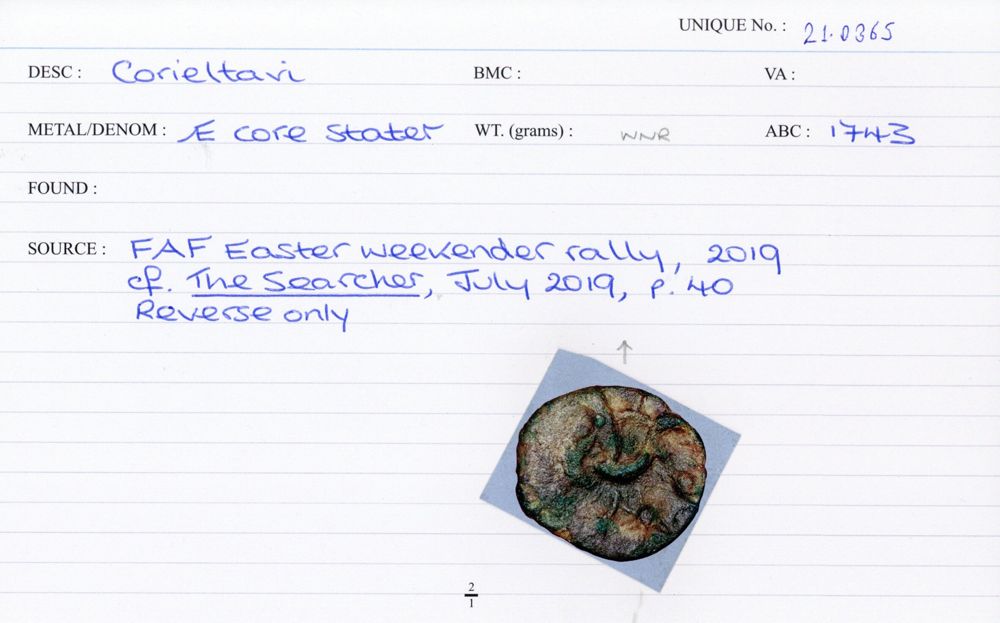 UNIQUE No. : 21.0365
DESC : Corieltavi BMC : VA :
METAL/DENOM : Æ core stater WT. (grams) : WNR ABC : 1743
FOUND :
SOURCE : FAF Easter weekender rally, 2019
cf. The Searcher, July 2019, p. 40
Reverse only
↑
2
1